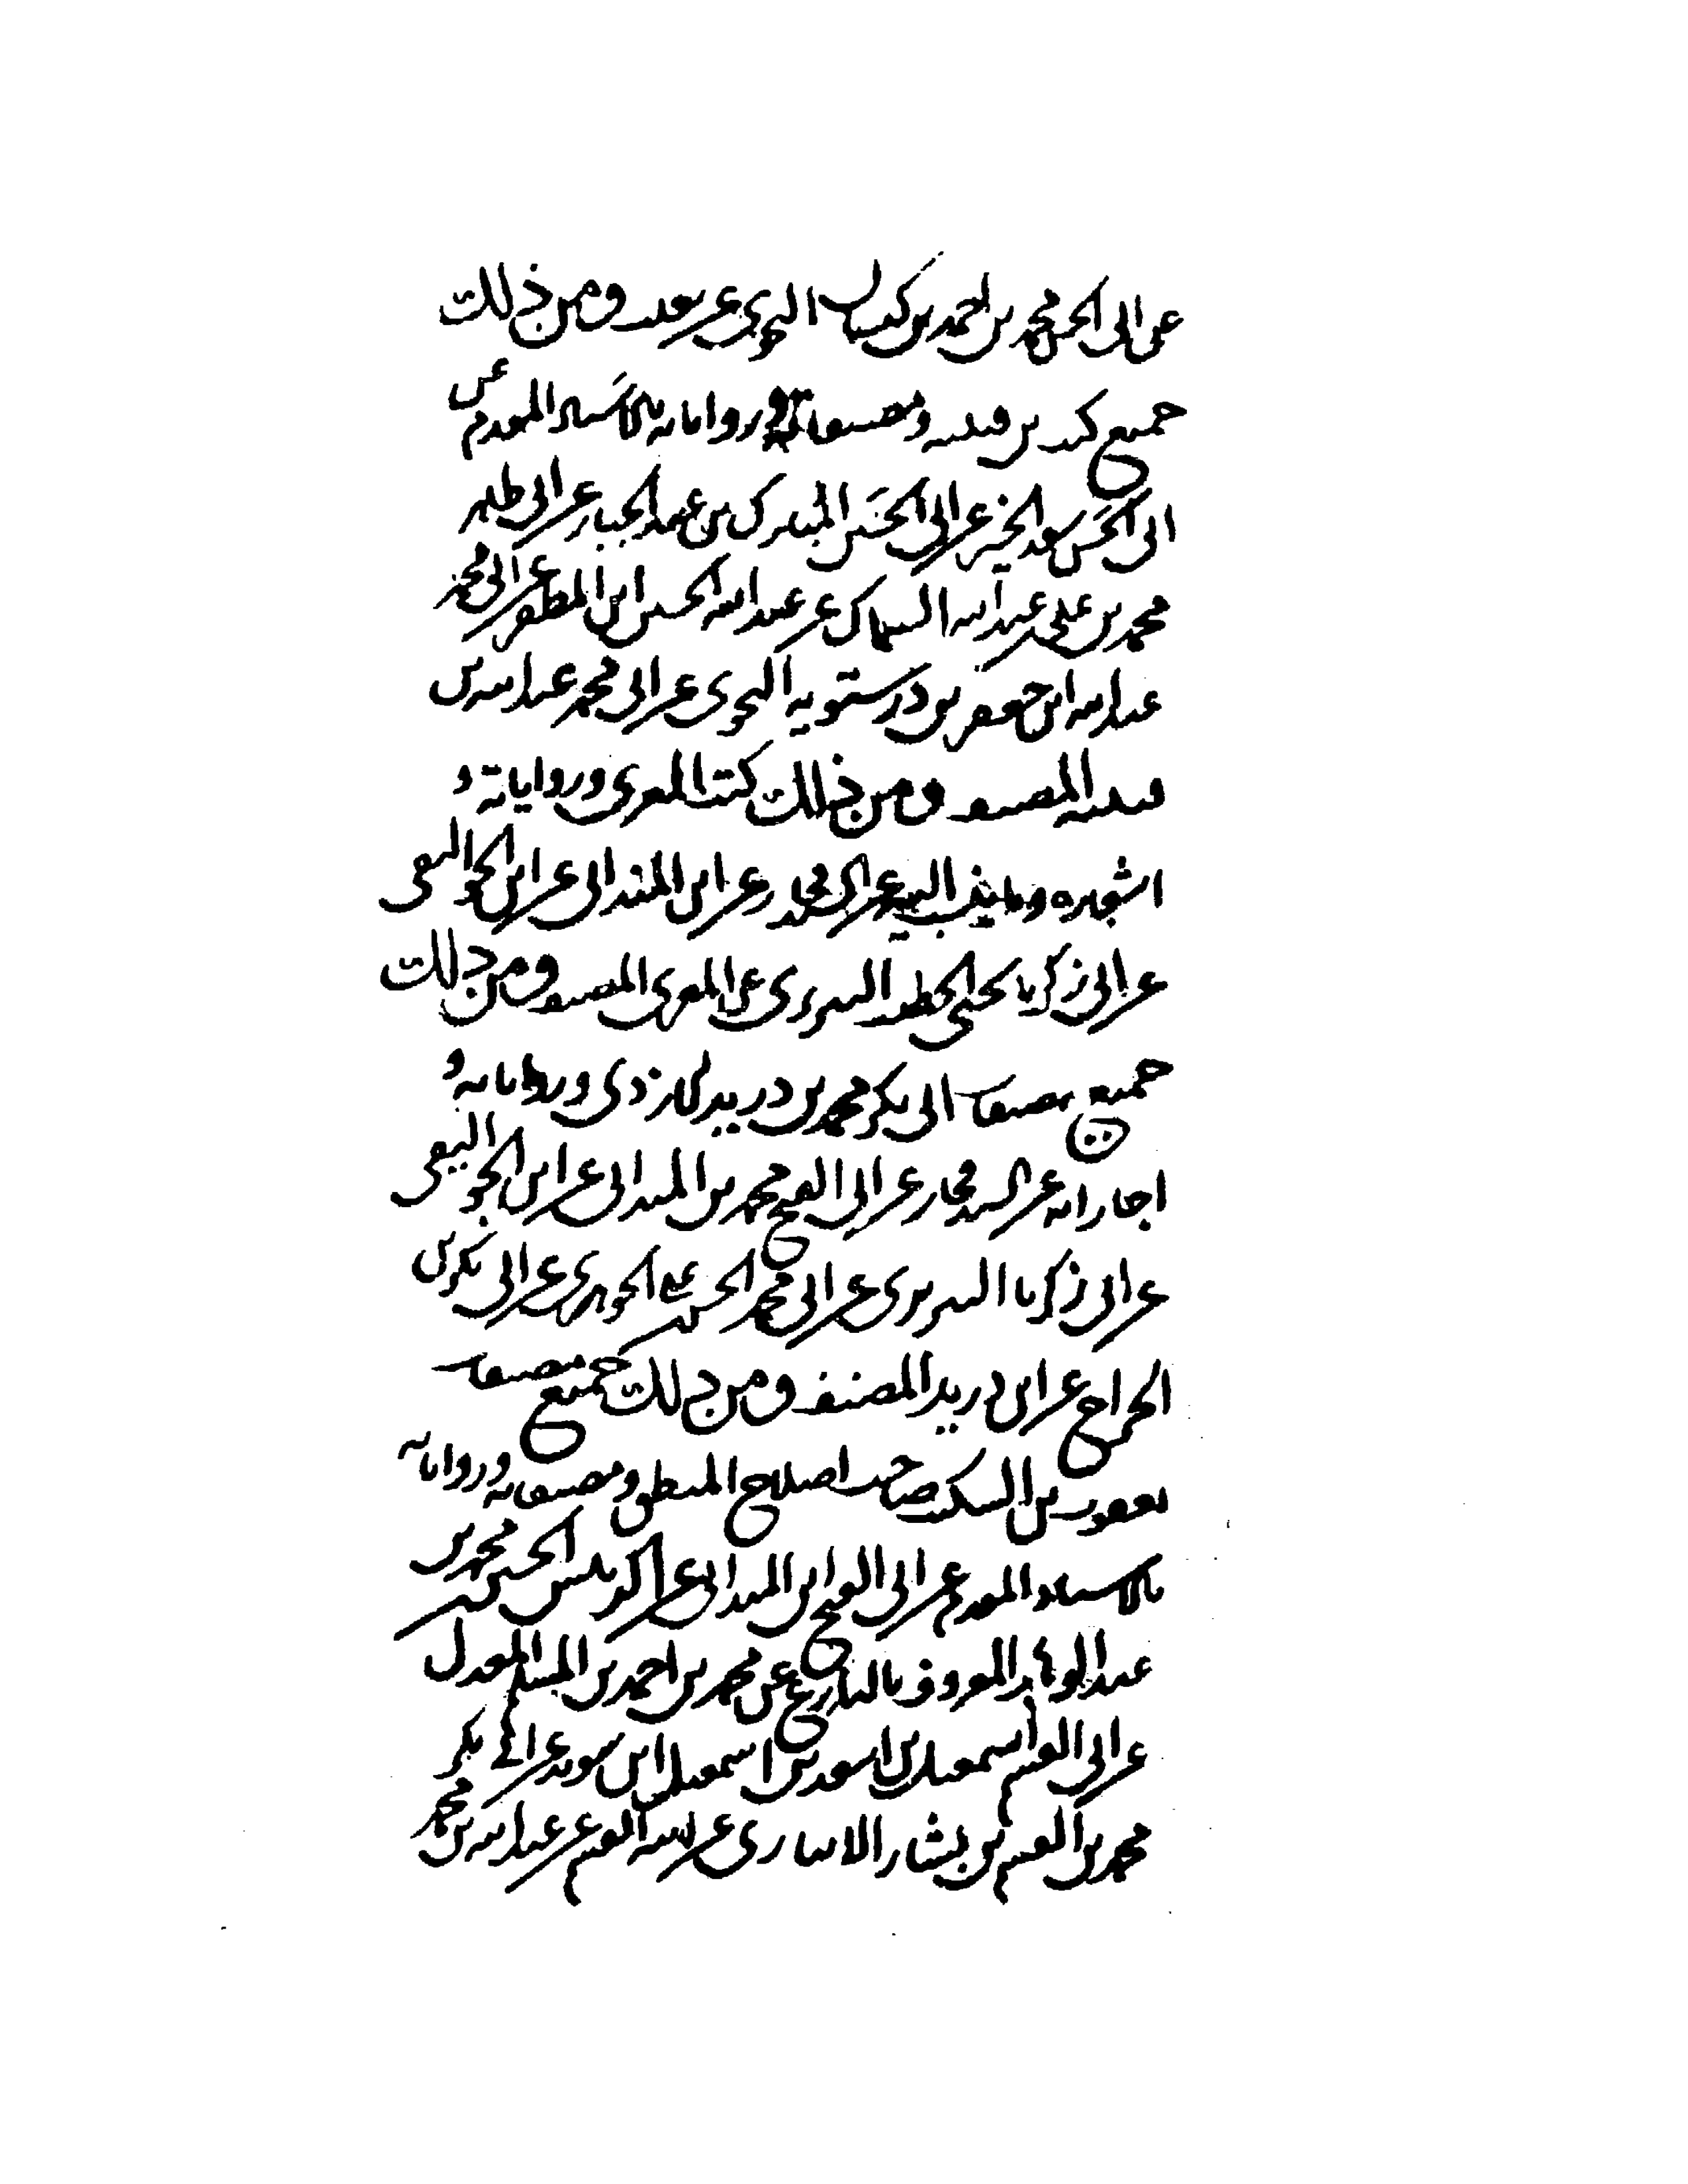 عن ابى الحسن محمد بن احمد بن كيسان النحوى عن ثعلب ومن ذلك
جميع كتب بن قتيبه ومصنفاته ورواياته بالاسناد المقدم عن
ابى الحسن سعد الخير عن ابى الحسن المبارك بن عبد الجبار عن ابى طاهر
محمد بن على بن عبد الله السماك عن عبد الله الحسين ابن المظفر عن ابى محمد
عبد الله ابن جعفر بن درستويه النحوى عن ابى محمد عبد الله بن
قتيبه المصنف ومن ذلك كتب المعرى ورواياته و
اشعاره وما ينسب اليه عن السيد فخار عن ابن المندائى عن ابن الجواليقى
عن ابى زكريا يحيى الخطيب التبريزى عن المعرى المصنف ومن ذلك
جميع مصنفات ابى بكر محمد بن دريد الازدى ورواياته و
اجازاته عن السيد فخار عن ابى الفتح محمد بن الميدانى عن ابن الجواليقى
عن ابى زكريا التبريزى عن ابى محمد الحسن بن على الجوهرى عن ابى بكر بن
الجراح عن ابن دريد المصنف ومن ذلك جميع مصنفات
يعقوب بن السكيت صاحب اصلاح المنطق ومصنفاته ورواياته
بالاسناد المقدم عن ابى الفتح ابن الميدانى عن الحسين بن محمد بن
عبد الوهاب المعروف بالبارع عن محمد بن احمد بن المسلمة المعدل
عن ابى القسم اسمعيل بن اسعد بن اسمعيل ابن سويد عن ابى بكر
محمد بن القسم بن بشار الانبارى عن ابيه القسم عن عبد الله بن محمد